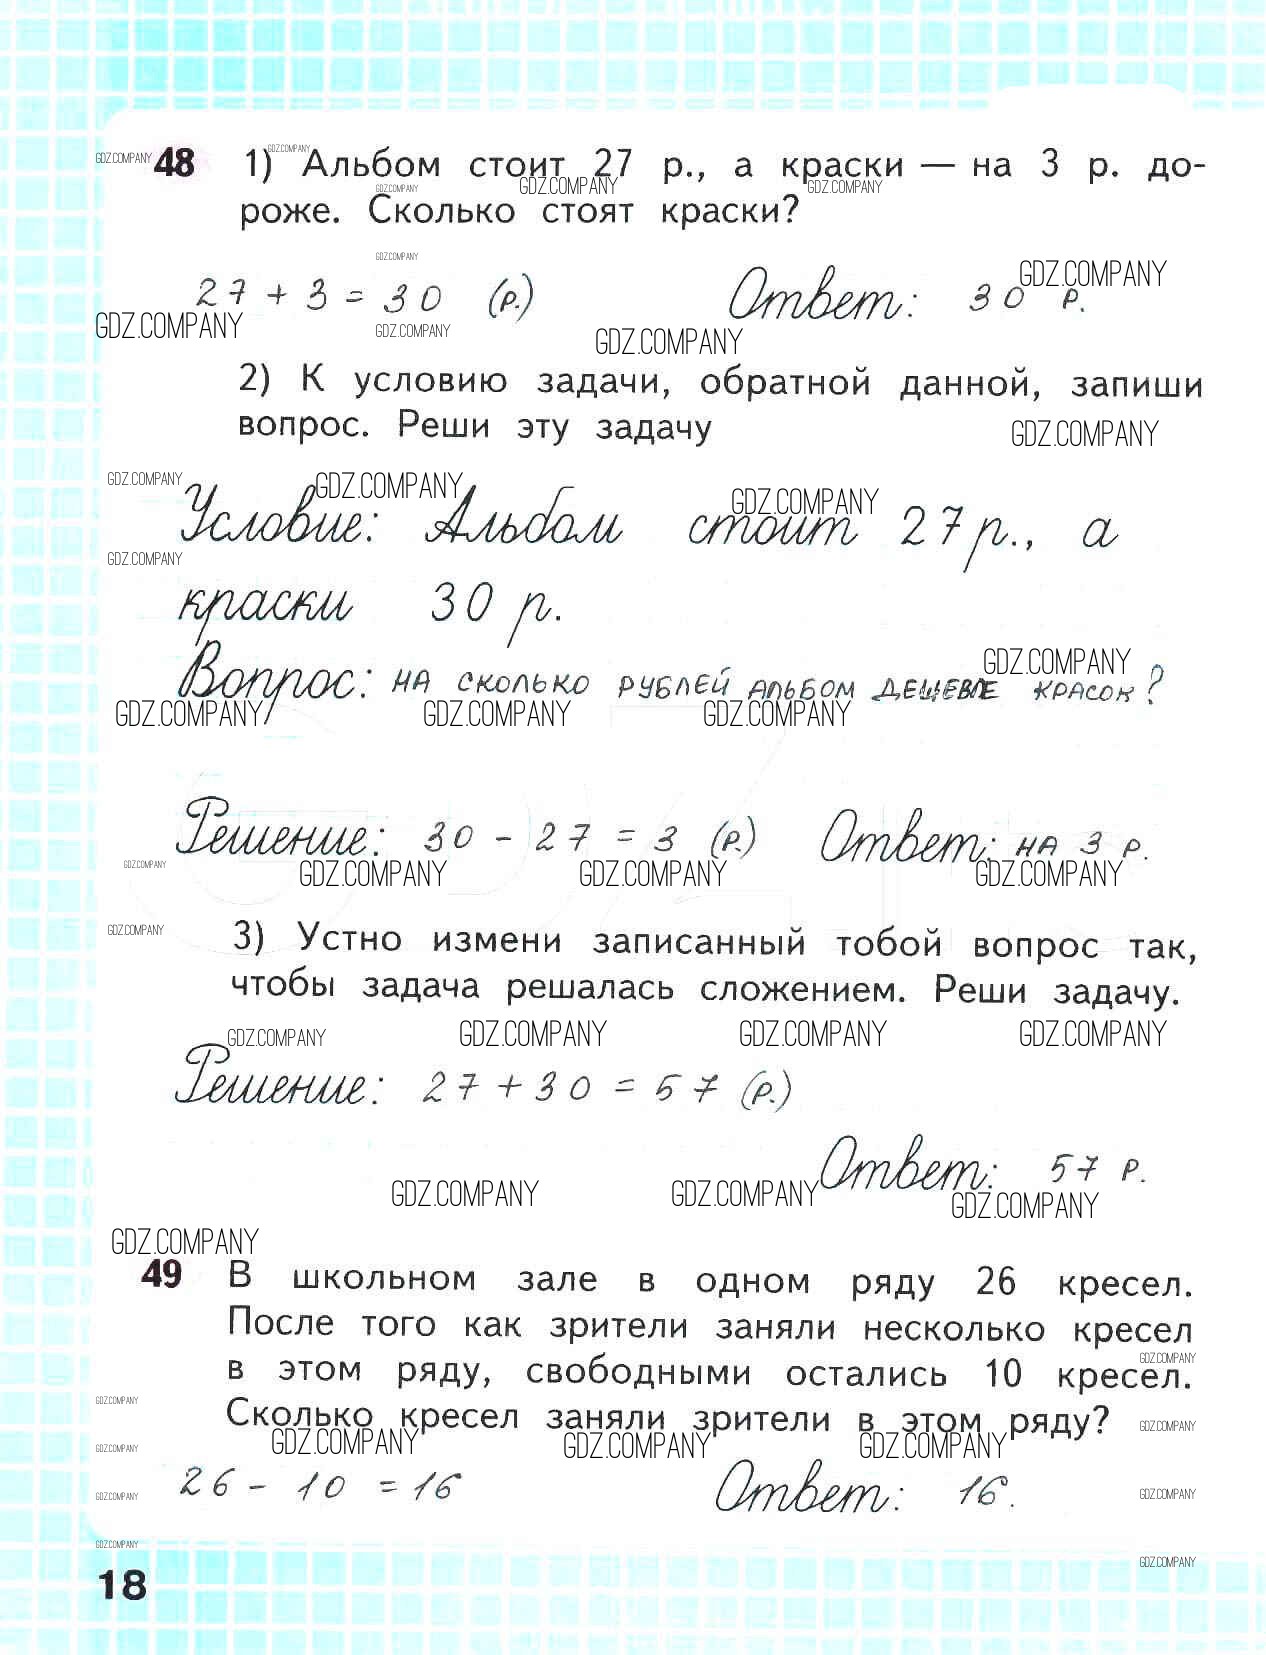 48 1) Альбом стоит 27 р., а краски — на 3 р. до-
роже. Сколько стоят краски?
27 + 3 = 30 (р.) Ответ: 30 р.
2) К условию задачи, обратной данной, запиши
вопрос. Реши эту задачу
Условие: Альбом стоит 27 р., а
краски 30 р.
Вопрос: на сколько рублей альбом дешевле красок?
Решение: 30 - 27 = 3 (р.) Ответ: на 3 р.
3) Устно измени записанный тобой вопрос так,
чтобы задача решалась сложением. Реши задачу.
Решение: 27 + 30 = 57 (р.)
Ответ: 57 р.
49 В школьном зале в одном ряду 26 кресел.
После того как зрители заняли несколько кресел
в этом ряду, свободными остались 10 кресел.
Сколько кресел заняли зрители в этом ряду?
26 - 10 = 16 Ответ: 16.
18
GDZ.COMPANY